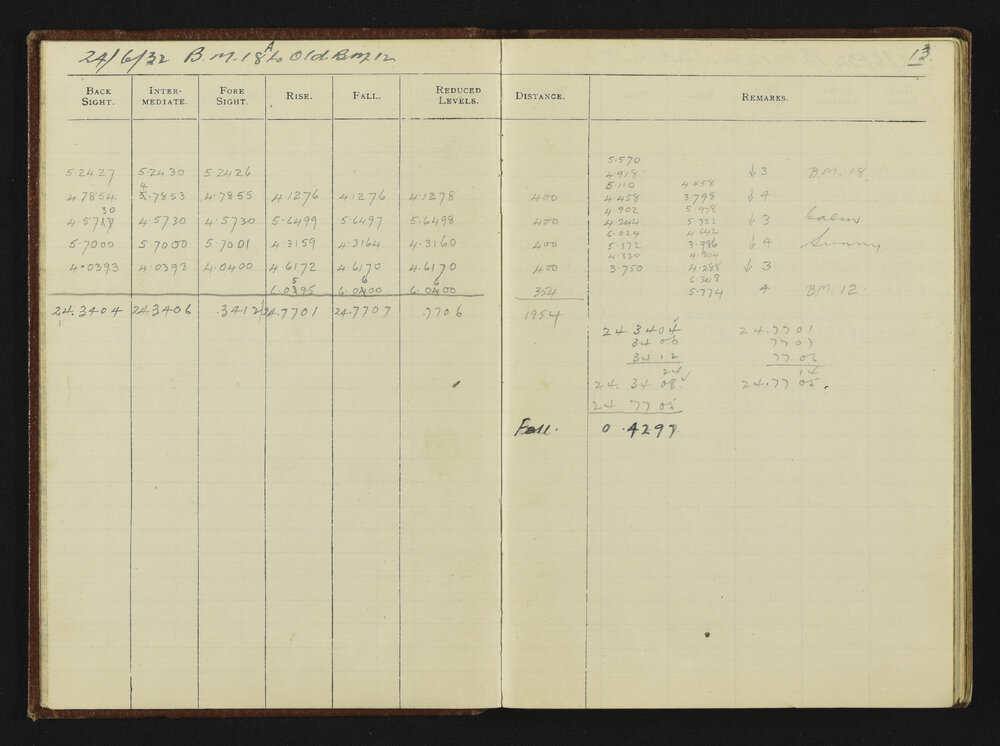 24/6/32 B.M. 18A to Old B.M. 12
13.
BACK SIGHT. INTERMEDIATE. FORE SIGHT. RISE. FALL. REDUCED LEVELS. DISTANCE. REMARKS.
5.570
5.2427 5.2430 5.2426 4.918 ↓3 B.M. 18
4 5.110 4.458
4.7854 5.7853 4.7855 4.1276 4.1276 4.1278 400 4.458 3.798 ↓4
30 4.902 5.978
4.5717 4.5730 4.5730 5.6499 5.6497 5.6498 400 4.244 5.322 ↓3 Calm
6.024 4.642
5.7000 5.7000 5.7001 4.3159 4.3164 4.3160 400 5.372 3.986 ↓4 Sunny
4.330 4.944
4.0393 4.0393 4.0400 4.6172 4.6170 4.6170 400 3.750 4.288 ↓3
5 6 6 6.347
6.0395 6.0400 6.0400 354 5.774 4 B.M. 12
24.3404 24.3406 .3412 24.7701 24.7707 .7706 1954
24 3404 24.7701
3406 7707
3412 7706
24 14
24. 3408 24.7705.
24 7705
Fall. 0.4297